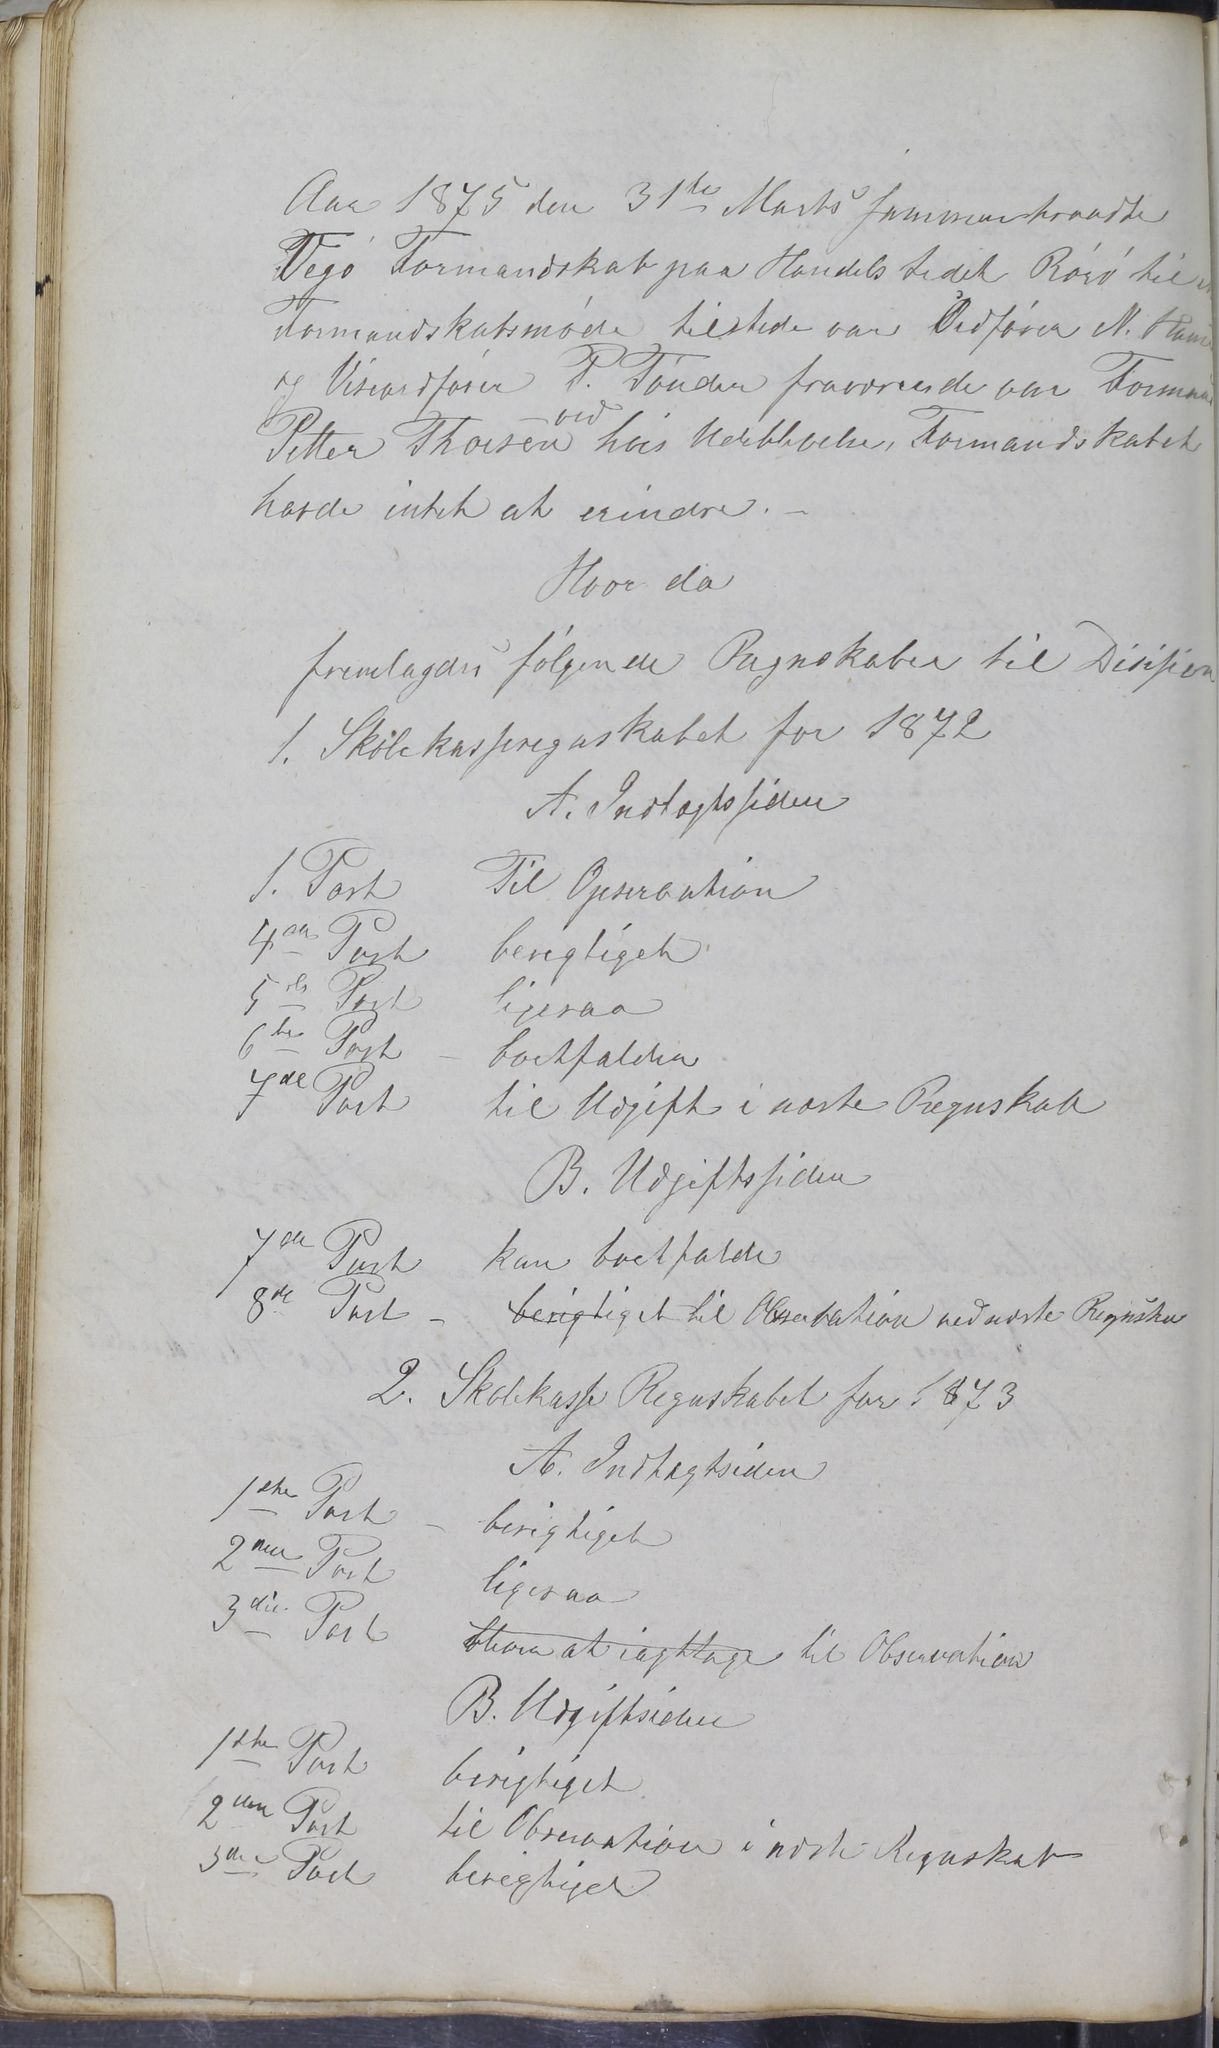 Aar 1875 den 31te Marts sammentraadte
Vegø Formandskab paa Handelstedet Rørø til
Formandskabsmøde tilstede var Ordfører N.
og Viseordfører P. Tønder fraværende var
Petter Thorsen ved hvis Udeblivelse, Formandskabet
havde intet at erindre. -
Hvor da
fremlagdes følgende Regnskaber til Disision
1. Skolekasseregnskabet for 1872
A. Indtægtssiden
1. Post Til Opservation
4de Post beregtiget
5te Post ligesaa
6te Post - bortfalder
7de Post til Udgift i næste Regnskab
B. Udgiftssiden
7de Post kan bortfalde
8de Post - berigtiget til Observation ved næste
2. Skolekasse Regnskabet for 1873
A. Indtægtsiden
1ste Post - berigtiget
2den Post ligesaa
3die Post at iagttage til Observation
B. Udgiftsiden
1ste Post berigtiget
2den Post til Observation i næste Regnskab
3die Post beregtiget